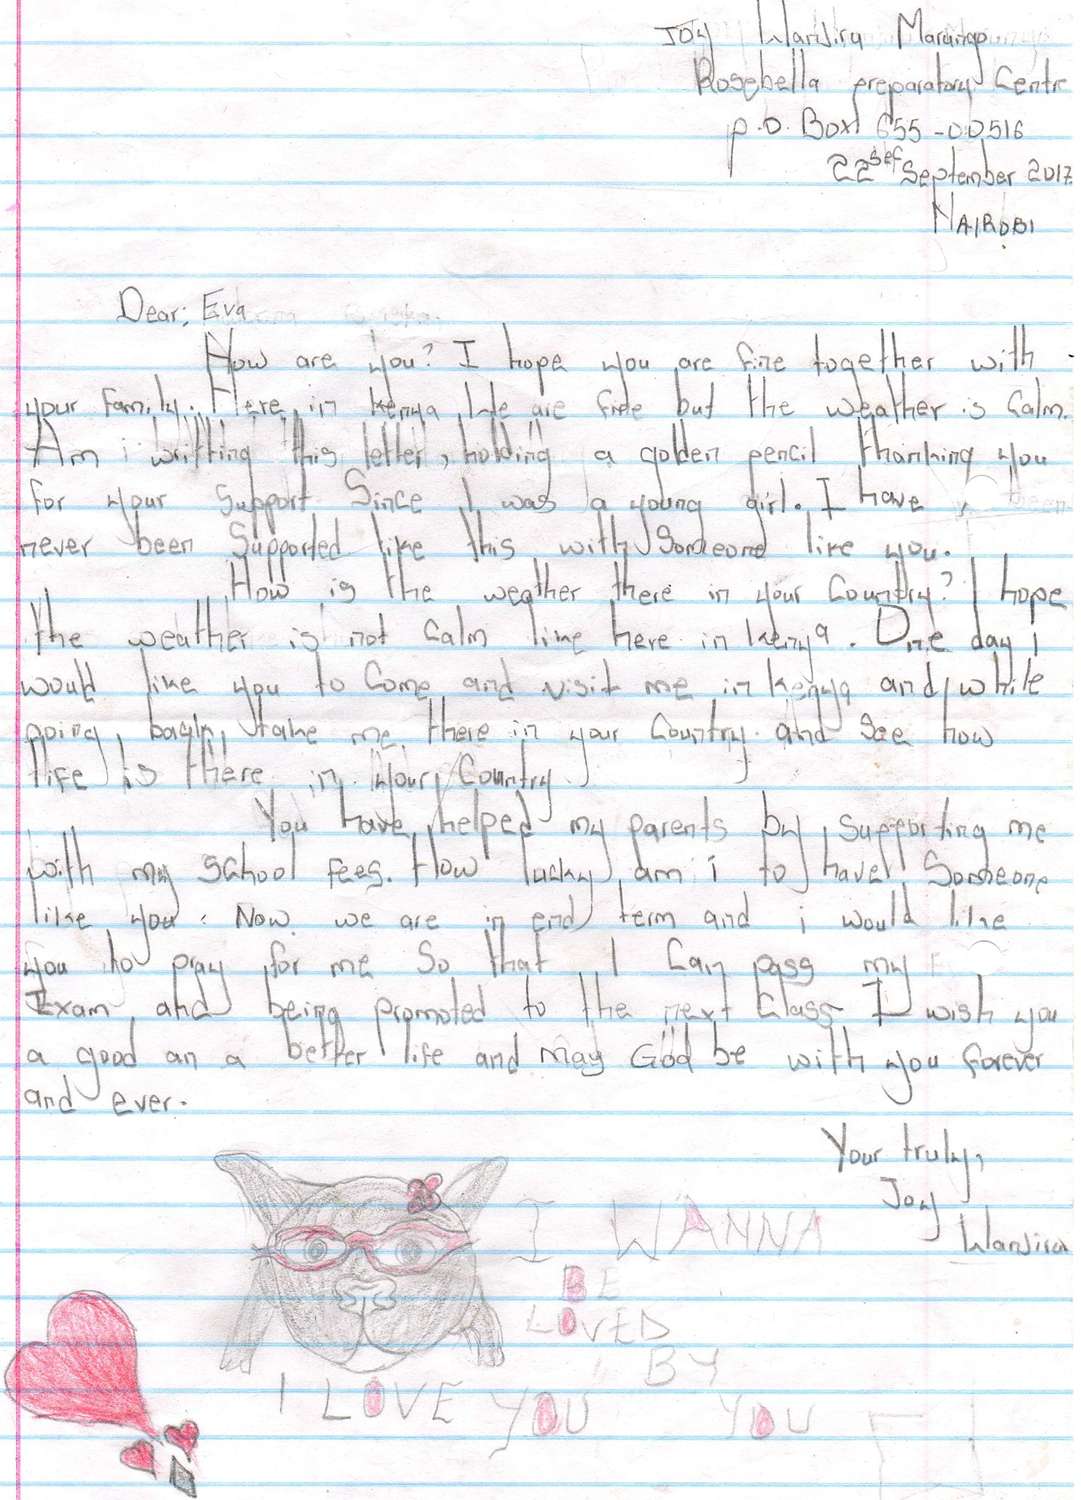 Joy Wanjiru Marungo
Rosebella preparatory Centr
P.O. Box 655 - 00516
22 September 2017
NAIROBI
Dear; Eva
How are you? I hope you are fine together with
your family. Here in kenya We are fine but the weather is Calm.
Am i writting this letter, holding a golden pencil thanking you
for your Support Since I was a young girl. I have
never been Supported like this with Someone like you.
How is the weather there in your Country? I hope
the weather is not Calm like here in kenya. One day I
would like you to Come and visit me in kenya and while
going back, take me there in your Country and See how
life is there in your Country.
You have helped my parents by supporting me
with my School fees. How lucky am i to have Someone
like you. Now we are in end term and i would like
you to pray for me So that I Can pass my
Exam and being promoted to the next Class I wish you
a good an a better life and may God be with you forever
and ever.
Your truly,
Joy
Wanjira
I WANNA
BE
LOVED
BY
YOU
I LOVE YOU